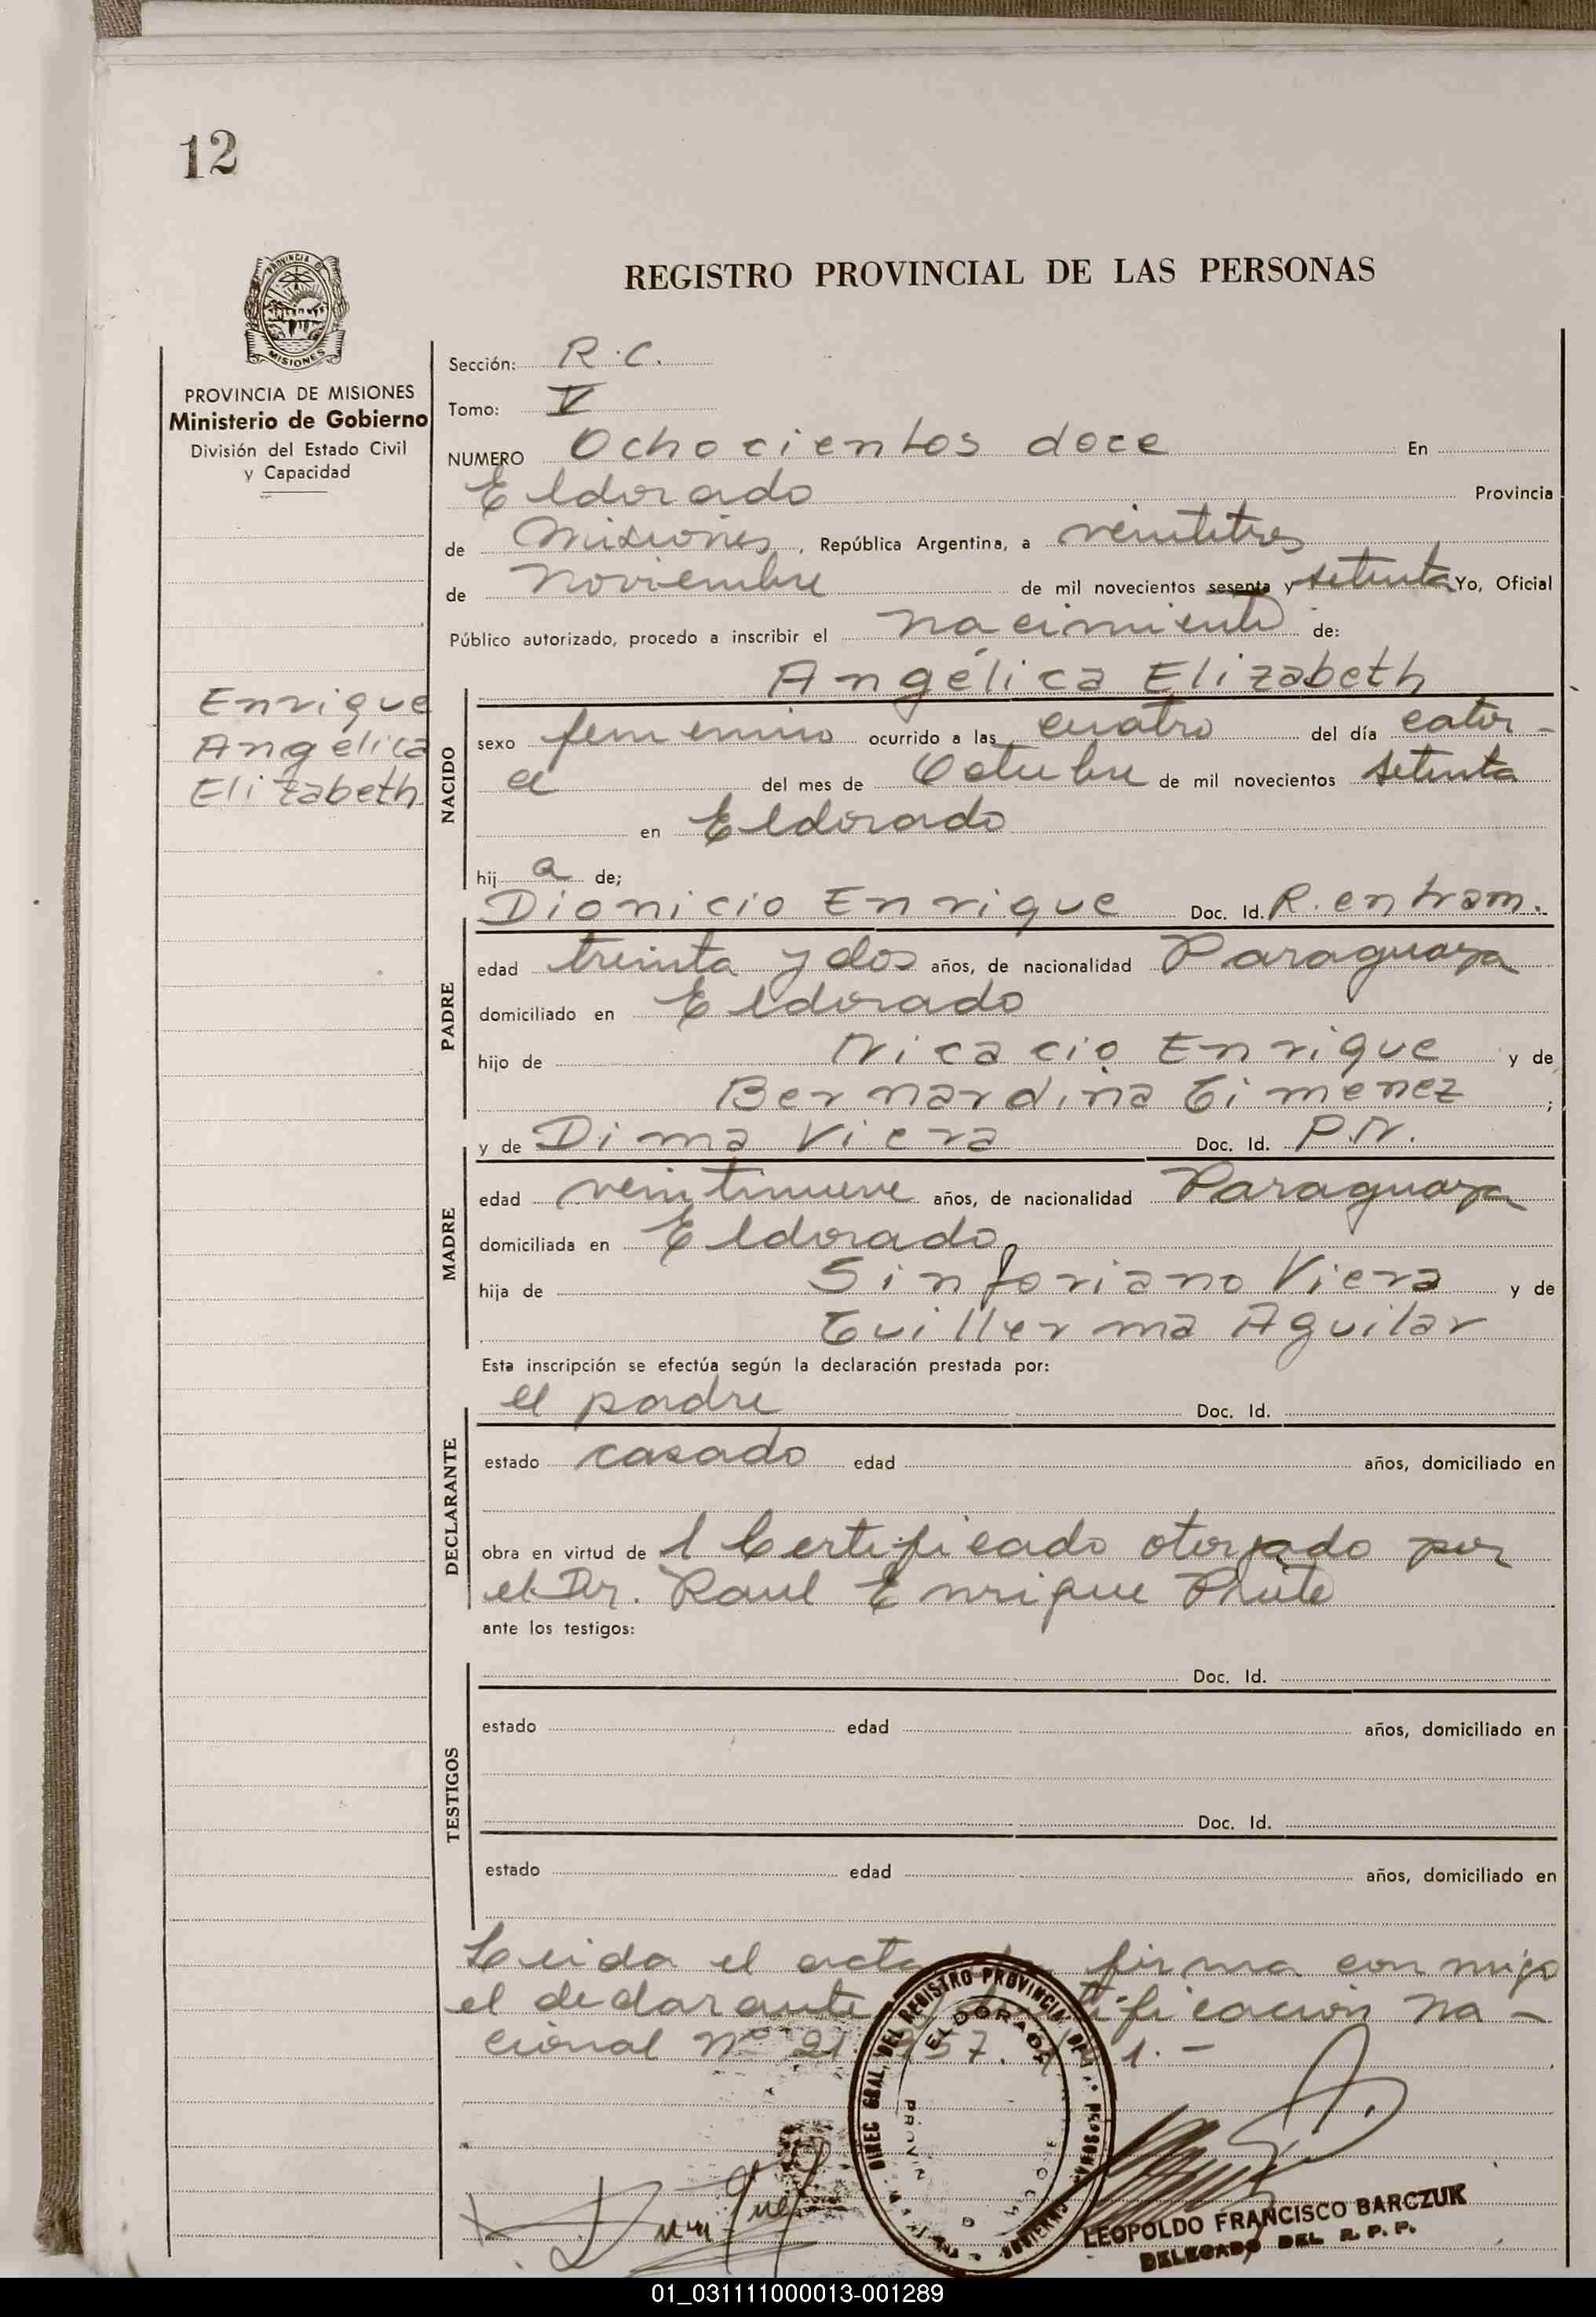 12
REGISTRO PROVINCIAL DE LAS PERSONAS
PROVINCIA DE
MISIONES
PROVINCIA DE MISIONES
Ministerio de Gobierno
División del Estado Civil
y Capacidad
Enrique
Angélica
Elizabeth
Sección: R.C.
Tomo: V
NUMERO Ochocientos doce En
Eldorado Provincia
de Misiones, República Argentina, a veintitres
de Noviembre de mil novecientos sesenta y setenta Yo, Oficial
Público autorizado, procedo a inscribir el nacimiento de:
Angélica Elizabeth
NACIDO
sexo femenino ocurrido a las cuatro del día cator-
ce del mes de Octubre de mil novecientos setenta
en Eldorado
hij a de;
Dionicio Enrique Doc. Id. R. en tram.
PADRE
edad treinta y dos años, de nacionalidad Paraguaya
domiciliado en Eldorado
hijo de Nicacio Enrique y de
Bernardina Gimenez ;
y de Dima Viera Doc. Id. P.N.
MADRE
edad veintinueve años, de nacionalidad Paraguaya
domiciliada en Eldorado
hija de Sinforiano Viera y de
Guillerma Aguilar
Esta inscripción se efectúa según la declaración prestada por:
el padre Doc. Id.
DECLARANTE
estado casado edad años, domiciliado en
obra en virtud de 1 Certificado otorgado por
el Dr. Raul Enrique
ante los testigos:
TESTIGOS
Doc. Id.
estado edad años, domiciliado en
Doc. Id.
estado edad años, domiciliado en
Leida el acta firma conmigo
el declarante
cional Nº
DIREC GRAL. DEL REGISTRO PROVINCIAL
ELDORADO
LEOPOLDO FRANCISCO BARCZUK
DELEGADO DEL R. P. P.
01_031111000013-001289